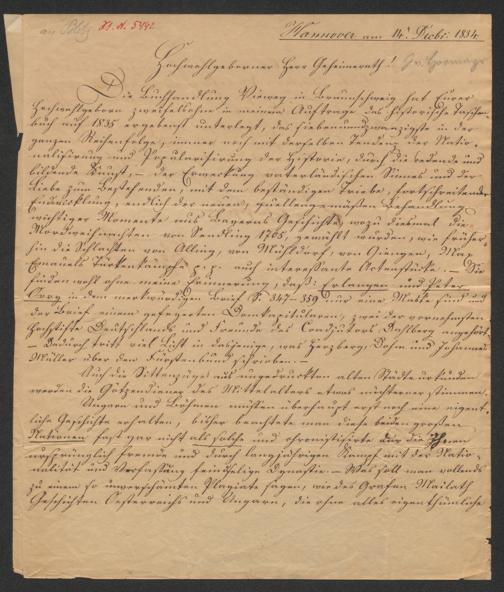 an Pölitz H. N. 5492
Hannover am 14. Dicbr. 1834
Hochwohlgeborner Herr Geheimerath!
Die Buchhandlung Vieweg in Braunschweig hat Euer
Hochwohlgeborn zweifelsohne in meinem Auftrage das historische Taschen-
buch auf 1835 ergebenst unterlegt, das siebenundzwanzigste in der
ganzen Reihenfolge, immer noch mit derselben Tendenz der Natio-
nalisirung und Popularisirung der Historie, durch die redende und
bildende Kunst, – der Erweckung vaterländischen Sinnes und der
Liebe zum Bestehenden, mit dem beständigen Triebe, fortschreitender
Entwicklung, endlich der neuen, quellengemäßen Behandlung
wichtiger Momente aus Bayerns Geschichte, wozu diesmal die
Mordweihnachten von Sendling 1705, gewählt wurden, wie früher
hin die Schlachten von Alling, von Mühldorf, von Giengen, Max
Emanuels Türkenkämpfe auch interessante Actenstücke. – Sie
finden wohl ohne meine Erinnerung, daß: Erlangen und Peter
in dem merkwürdigen Brief S. 347–359 nur eine Maske sind und
der Brief einem gefeyerten Domkapitularen, zwei der vornehmsten
Hochstifte Deutschlands und Freunde des Coadjutors Dalberg angehört.
– Dadurch tritt viel Licht in dasjenige, was Herzberg, Dohm und Johannes
Müller über den Fürstenbund schrieben. –
Auch die Sittenzüge aus ungedruckten alten Städteurkunden
werden die Götzendiener des Mittelalters etwas nüchterner stimmen.
Ungarn und Böhmen müssen überhaupt erst noch eine eigent-
liche Geschichte erhalten, bisher beachtete man diese beiden großen
Nationen fast gar nicht als solche und chronisirte nur die ihnen
ursprünglich fremde und durch langjährigen Kampf mit der Natio-
nalität und Verfassung feindselige Dynastie. – Was soll man vollends
zu einem so unverschämten Plagiate sagen, wie des Grafen Mailath
Geschichten Oesterreichs und Ungarn, die ohne alles eigenthümliche